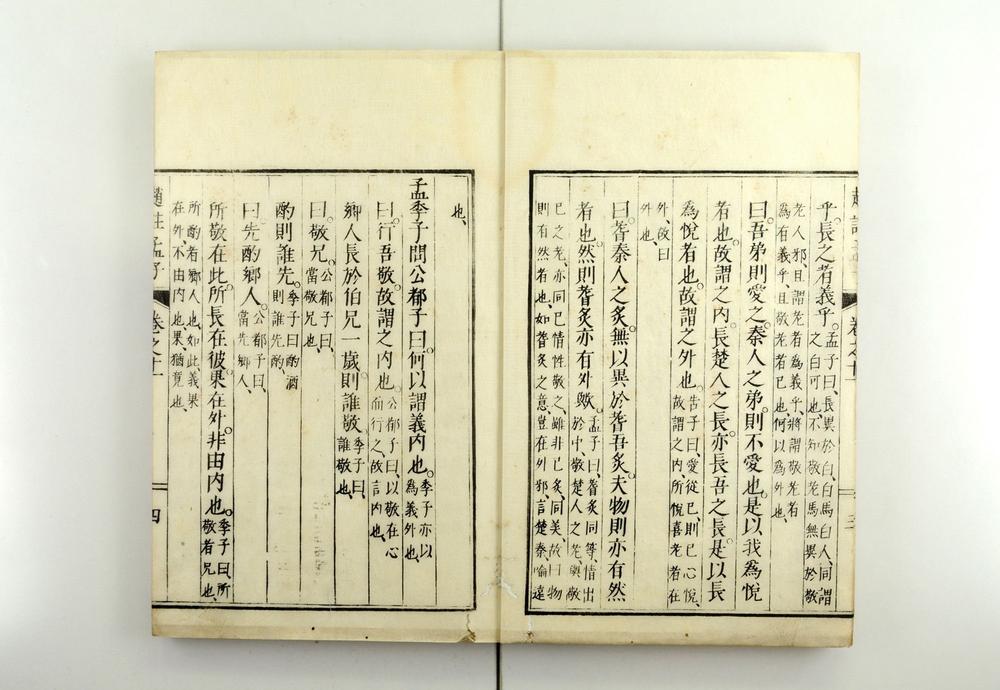 趙註孟子 卷之十一 三
乎。長之者義乎。孟子曰、長異於白、白馬白人、同謂
之白可也、不知敬老馬無異於敬
老人邪、且謂老者爲義乎、將謂敬老者
爲有義乎、且敬老者已也、何以爲外也、
曰。吾弟則愛之。秦人之弟。則不愛也。是以我爲悅
者也。故謂之内。長楚人之長。亦長吾之長。是以長
爲悅者也。故謂之外也。告子曰、愛從己則己心悅、
故謂之内、所悅喜老者在
外、故曰
外也、
曰。耆秦人之炙。無以異於耆吾炙。夫物則亦有然
者也。然則耆炙亦有外歟。孟子曰、耆炙同等、情出
於中、敬楚人之老、與敬
己之老、亦同己情性敬之、雖非己炙、同美、故曰物
則有然者也、如耆炙之意、豈在外邪、言楚秦喻遠
也、
孟季子問公都子曰。何以謂義内也。季子亦以
爲義外也、
曰。行吾敬。故謂之内也。公都子曰、以敬在心
而行之、故言内也、
鄉人長於伯兄一歲。則誰敬。季子曰、
誰敬也、
曰。敬兄。公都子曰、
當敬兄也、
酌則誰先。季子曰、酌酒
則誰先酌、
曰。先酌鄉人。公都子曰、
當先鄉人、
所敬在此。所長在彼。果在外。非由内也。季子曰、所
敬者兄也、
所酌者鄉人也、如此、義果
在外、不由内也、果、猶竟也、
趙註孟子 卷之十一 四